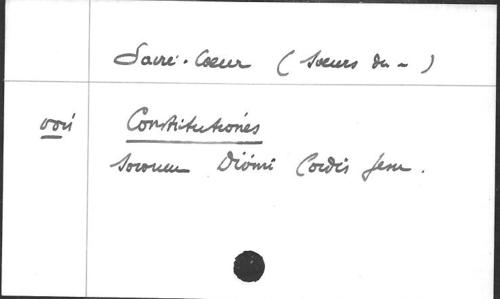 Sacré-Coeur (Soeurs du ~)
voir Constitutiones
Sororum Divini Cordis Jesu.